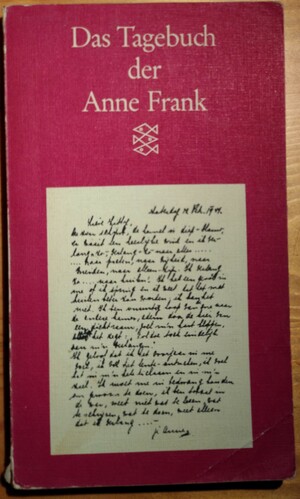 Das Tagebuch
der
Anne Frank
Zaterdag 12 Feb. 1944.
Lieve Kitty,
De zon schijnt, de hemel is diep-blauw,
er waait een heerlijke wind en ik ver-
lang-zo,-verlang-zo-naar alles.....
Naar praten, naar vrijheid, naar
vrienden, naar alleen-zijn. Ik verlang
zo.... naar huilen! Ik heb een gevoel in
me of ik spring en ik weet dat het met
huilen beter zou worden, ik kan het
niet. Ik ben onrustig, loop van de ene naar
de andere kamer, adem door de kier van
een dicht raam, voel m'n hart kloppen,
alsof het zegt: Voldoe toch eindelijk
aan m'n verlangen.
Ik geloof dat ik het voorjaar in me
voel, ik voel het lente-ontwaken, ik voel
het in m'n hele lichaam en in m'n
ziel. Ik moet me in bedwang houden
om gewoon te doen, ik ben totaal in
de war, weet niet wat te lezen, wat
te schrijven, wat te doen, weet alleen
dat ik verlang....